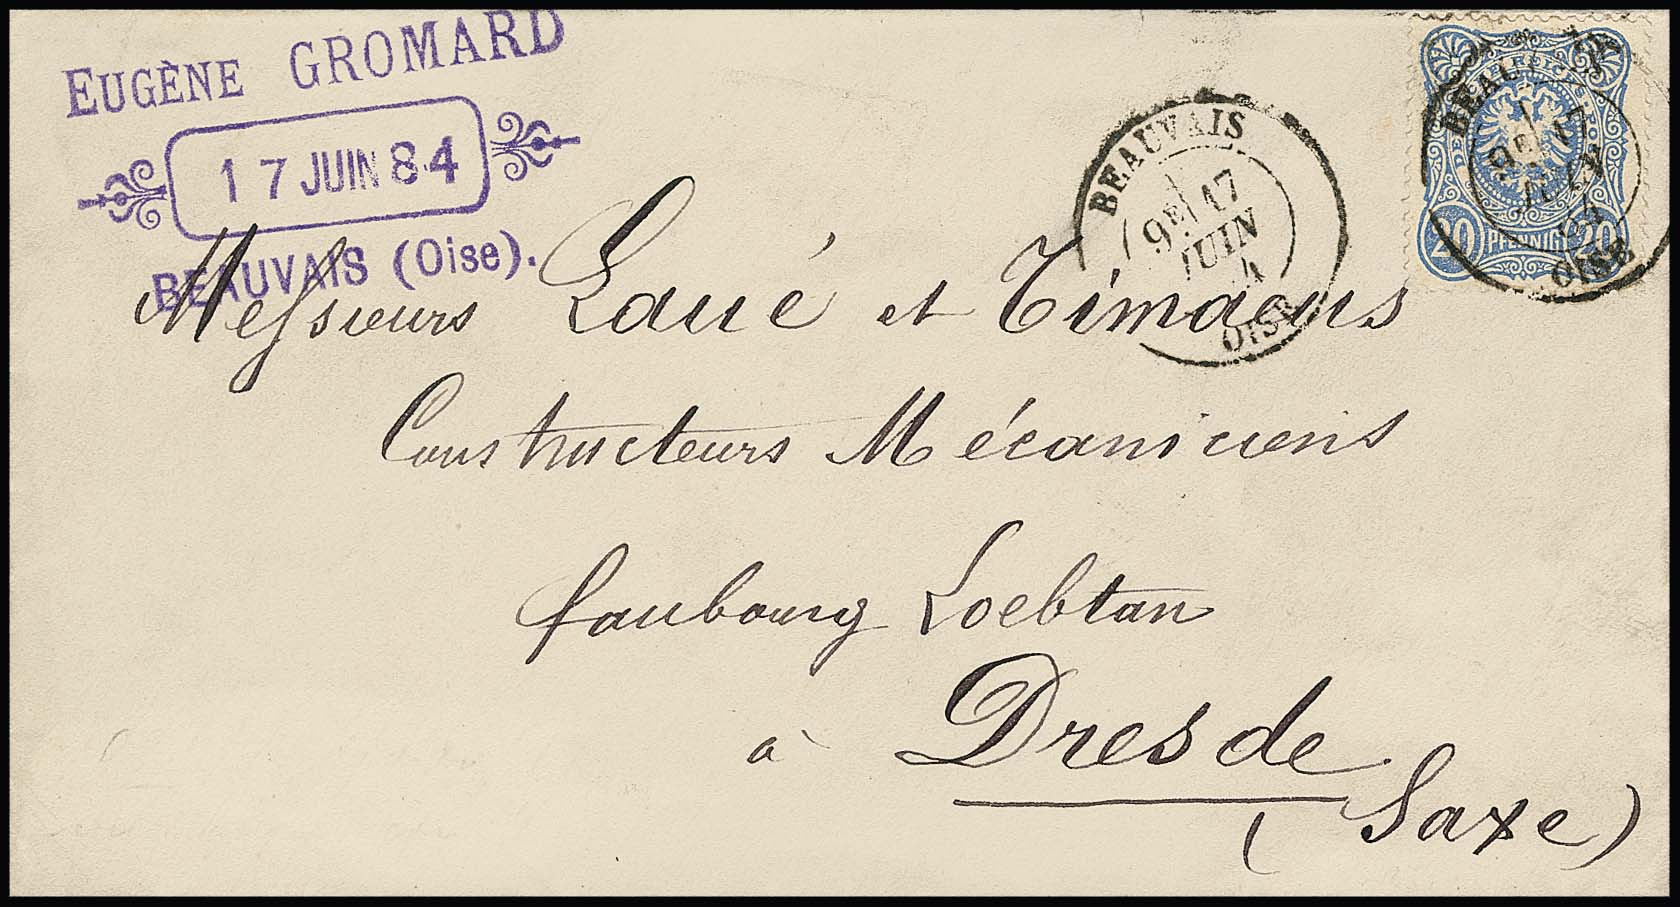 EUGÈNE GROMARD
17 JUIN 84
BEAUVAIS (Oise).
BEAUVAIS
9E 17
JUIN
4
OISE
BEAUVAIS
9E 17
JUIN
84
OISE
20 PFENNIG 20
Messieurs Laué et Timaeus
Constructeurs Mécaniciens
faubourg Loebtau
à Dresde
(Saxe)